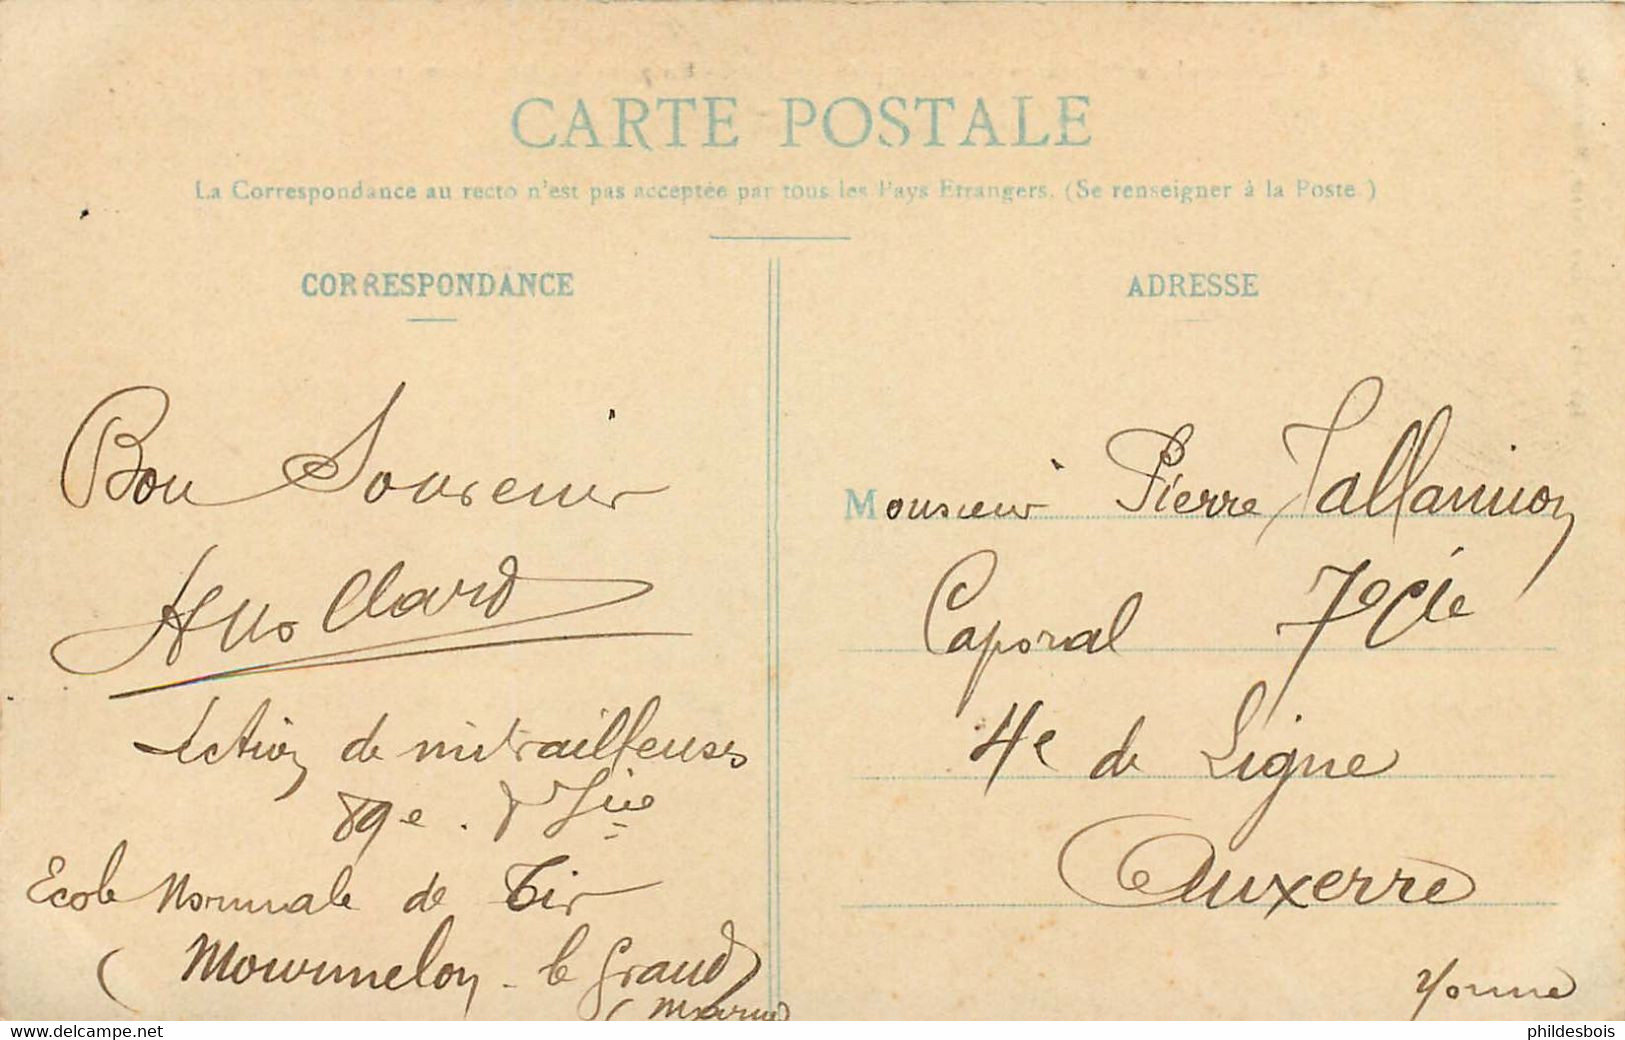 CARTE POSTALE
La Correspondance au recto n'est pas acceptée par tous les Pays Etrangers. (Se renseigner à la Poste.)
CORRESPONDANCE
Bon Souvenir
Clard
Section de mitrailleuses
89e.
Ecole Normale de Tir
(Mourmelon-le Grand)
(Marne
ADRESSE
Monsieur Pierre Tallamion
Caporal 7e Cie
4e de Ligne
Auxerre
Yonne
phildesbois